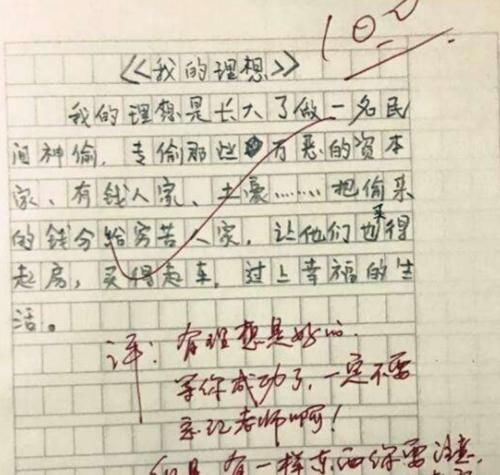 100
《我的理想》
我的理想是长大了做一名民
间神偷，专偷那些万恶的资本
家、有钱人家、土豪……把偷来
的钱分给穷苦人家，让他们也买得
起房，买得起车，过上幸福的生
活。
评：有理想是好的.
等你成功了，一定不要
忘记老师啊！
但是，有一样东西你要注意，